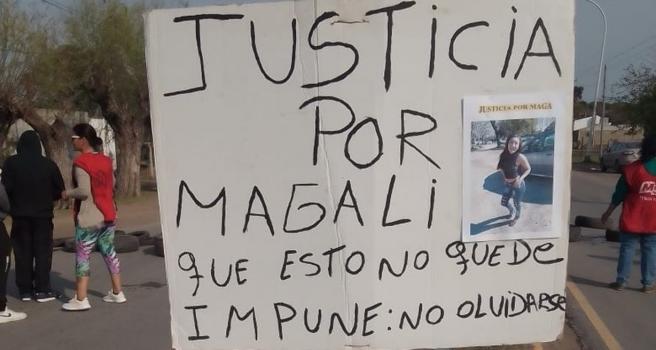 JUSTICIA
POR
JUSTICIA POR MAGA
MAGALI
QUE ESTO NO QUEDE
IMPUNE: NO OLVIDARSE